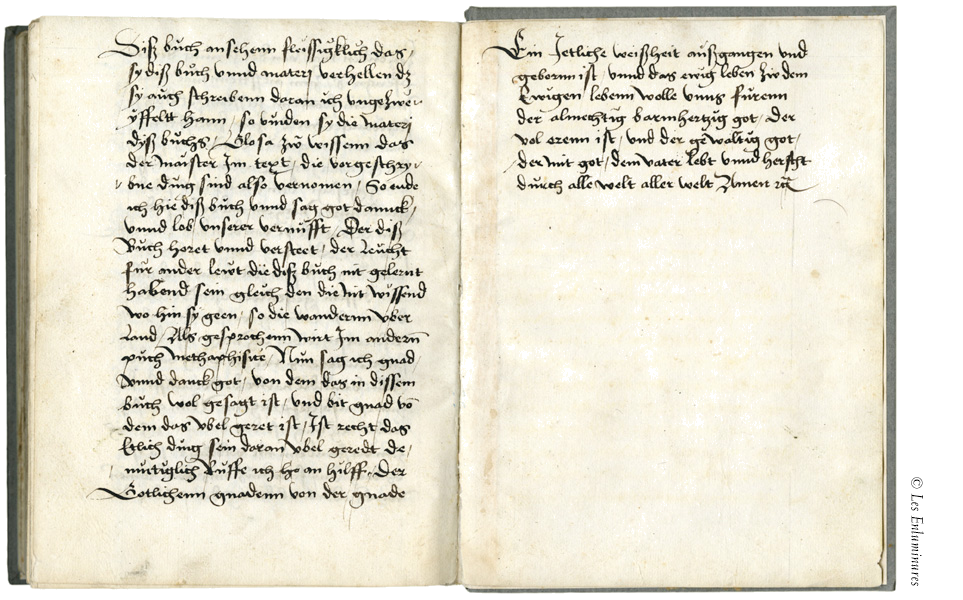 Disz buch ansehenn fleissigklich das /
sy disz buch vnnd materj verhellen dz
sy auch schreibenn daran ich vngezwe-
yffelt hann / so vinden sy die materj
dysz buchs / Glosa zů wissenn das
der maister Im text / die vorgeschry-
bne ding sind also vernomen / So ende
ich hie disz buch vnnd sag got dannck /
vnnd lob vnserer vernüfft / Der disz
Buch horet vnnd versteet / der leücht
für ander lewt die disz buch nit gelernt
habend sein gleich den die nit wissend
wo hin sy geen / so die wandernn vber
Land / Als gesprochenn wirt Im andern
puch methaphisice / Nun sag ich gnad
vnnd danck got / von dem das in dissem
buch wol gesagt ist / vnd bit gnad vō
dem das vbel geret ist / Ist recht das
Etlich ding sein daran vbel geredt de-
mutiglich Ruffe ich an hilff / Der
Gotlichenn gnadenn von der gnade
Ein Jetliche weiszheit auszgangen vnd
gebornn ist / vnnd das ewig leben zw dem
Ewigen lebenn wolle vnns fürenn
der almechtig barmhertzig got / der
vol erenn ist / vnd der gewaltig got /
der mit got / dem vater lebt vnnd herscht
durch alle welt aller welt Amen
© Les Enluminures